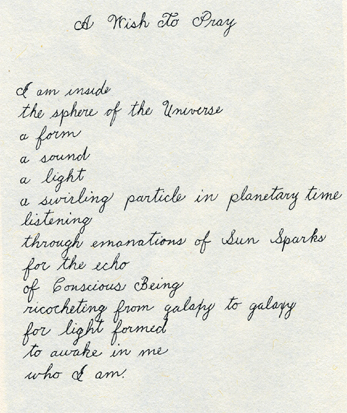 A Wish To Pray
I am inside
the sphere of the Universe
a form
a sound
a light
a swirling particle in planetary time
listening
through emanations of Sun Sparks
for the echo
of Conscious Being
ricocheting from galaxy to galaxy
for light formed
to awake in me
who I am.